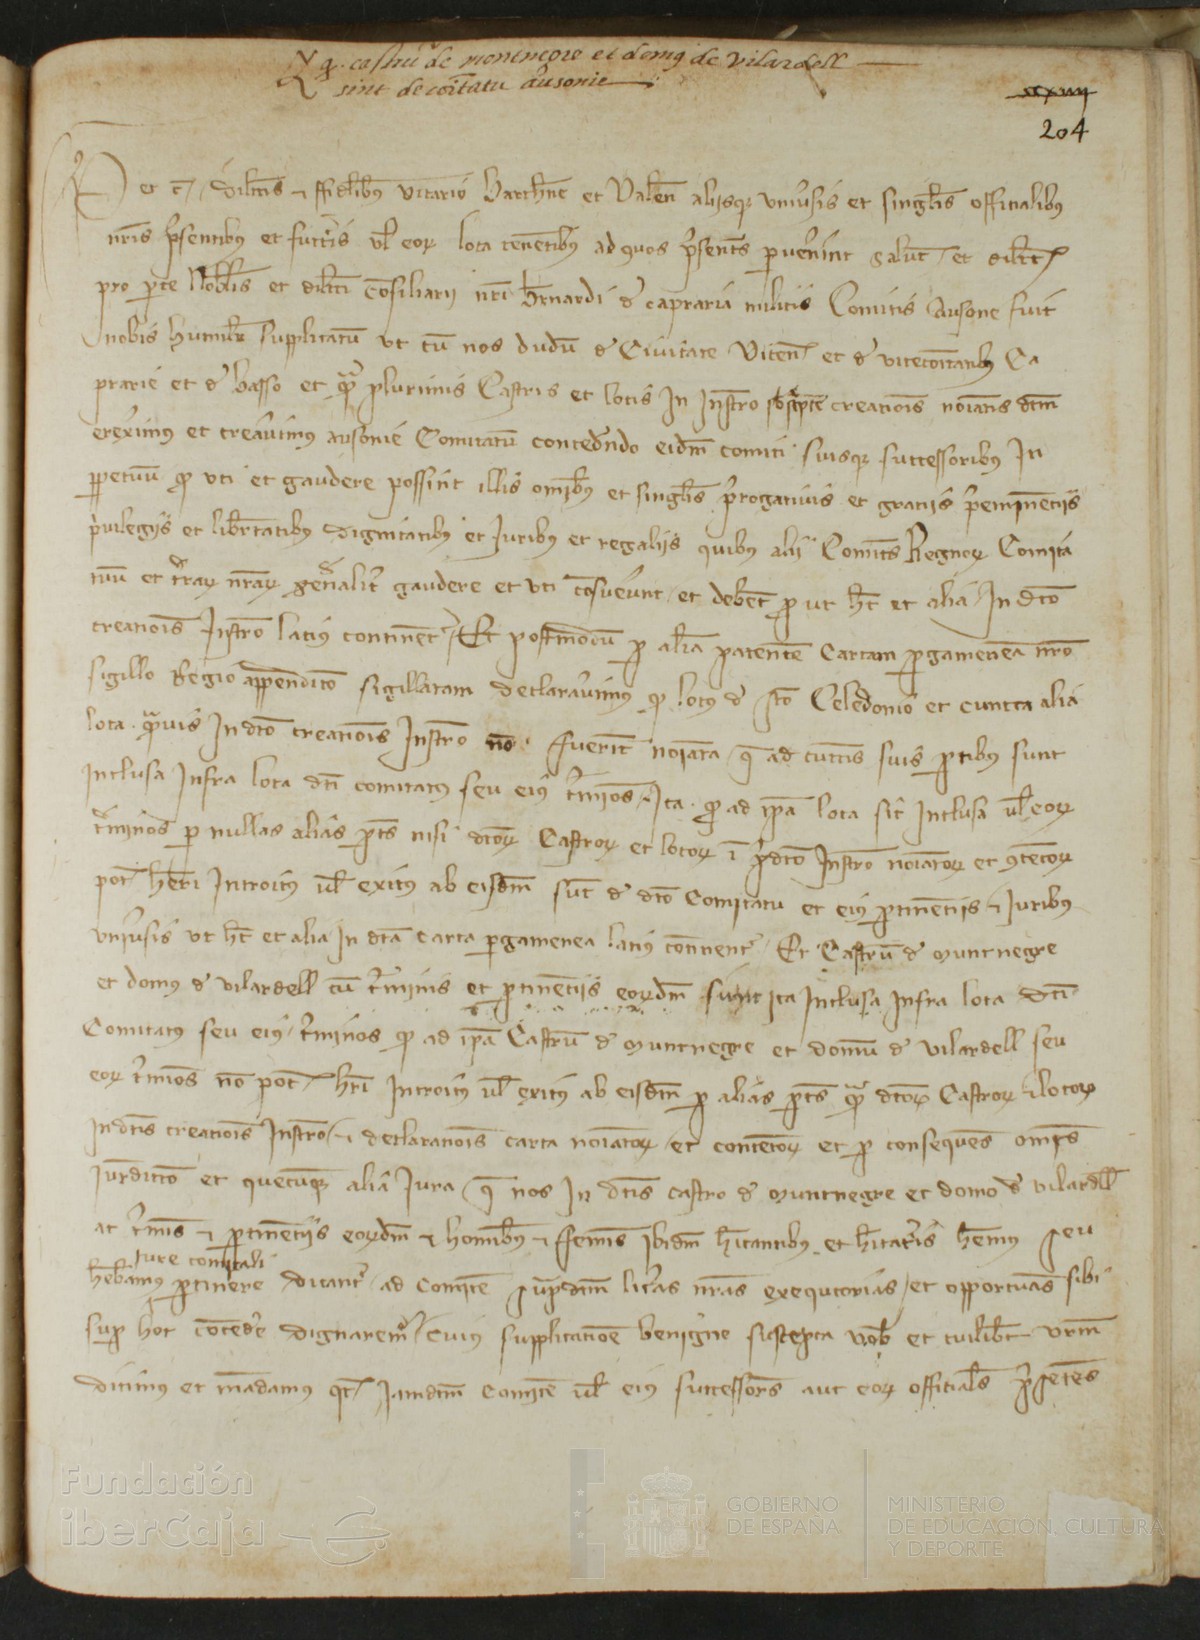 Q q castru de montnegre et domus de vilardell
sint de comitatu ausonie
204
P et c dilectis et fidelibus vicario Barchne et Valen aliisque universis et singulis officialibus
nris presentibus et futuris vel eorum loca tenentibus ad quos presentes pervenerint salutem et dilectionem
pro parte Nobilis et dilecti consiliarii nri Bernardi de capraria militis Comitis Ausone fuit
nobis humiliter supplicatum ut cum nos dudum de Civitate Vicen et de vicecomitatibus Ca
prarie et de basso et quam plurimis Castris et locis in Instro creationis noiatis
ereximus et creavimus ausonie Comitatum concedendo eidem comiti suisque successoribus In
perpetuum quod uti et gaudere possint illis omnibus et singulis prerogativis et graciis preeminenciis
privilegiis et libertatibus dignitatibus et Iuribus et regaliis quibus alii Comites Regnorum Comita
tuum et terrarum nrarum generaliter gaudere et uti consueverunt et debent prout hec et alia In dicto
creationis Instro lacius continentur Et postmodum per aliam patentem Cartam pergameneam nro
sigillo Regio appendicio sigillatam declaravimus quod locus de sto Celedonio et cuncta alia
loca quamvis In dicto creationis Instro non fuerint noiata que ad cunctis suis partibus sunt
Inclusa Infra loca dicti comitatus seu eius terminos Ita quod ad ipsa loca sic Inclusa vel eorum
terminos per nullas alias partes nisi dictorum Castrorum et locorum in predicto Instro noiatorum et contentorum
potest haberi Introitus vel exitus ab eisdem sunt de dicto Comitatu et eius pertinentiis et Iuribus
universis ut hec et alia In dicta carta pergamenea lacius continentur Et Castrum de Muntnegre
et domus de Vilardell cum terminis et pertinentiis eorumdem sunt ita Inclusa Infra loca dicti
Comitatus seu eius terminos quod ad ipsa Castrum de Muntnegre et domum de Vilardell seu
eorum terminos non potest haberi Introitus vel exitus ab eisdem per alias partes quam dictorum Castrorum et locorum
In dictis creationis Instro et declarationis carta noiatorum et contentorum et per consequens omnes
Iurdiccio et quecumque alia Iura que nos In dictis castro de Muntnegre et domo de Vilardell
ac terminis et pertinentiis eorumdem et hominibus et feminis Ibidem habitantibus et habitaturis habemus seu
iure comitali
habebamus pertinere dicantur ad Comitem supradictum licteras nras exequtorias et opportunas sibi
super hoc concedere dignaremur Cuius supplicatione benigne suscepta vobis et cuilibet vrum
dicimus et mandamus quatenus Iamdictum Comitem vel eius successores aut eorum officiales presentes
Fundación
iberCaja
GOBIERNO
DE ESPAÑA
MINISTERIO
DE EDUCACIÓN, CULTURA
Y DEPORTE